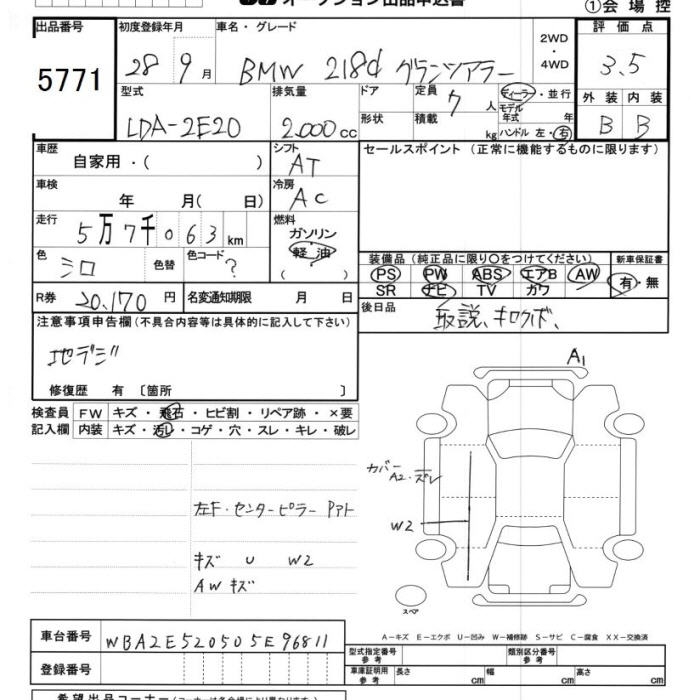 オークション出品申込書
①会場控
出品番号 初度登録年月 車名・グレード 2WD・4WD 評価点
5771 28 9月 BMW 218d グランツアラー 3.5
型式 排気量 ドア 定員 7人 ディーラー・並行 外装 内装
LDA-2E20 2.000cc 形状 積載 kg モデル年式 年 B B
ハンドル 左・右
車歴 シフト セールスポイント(正常に機能するものに限ります)
自家用・( ) AT
車検 冷房
年 月(日) AC
走行 燃料
5万7千063km ガソリン
軽油
( )
色 シロ 色替 色コード ?
装備品(純正品に限り○をつけてください) 新車保証書
PS PW ABS エアB AW 有・無
SR ナビ TV カワ
R券 20,170円 名変通知期限 月 日
後日品 取説、キロクボ、
注意事項申告欄(不具合内容等は具体的に記入して下さい)
地デジ
修復歴 有〔箇所 〕
検査員 FW キズ・飛石・ヒビ割・リペア跡・×要
記入欄 内装 キズ・汚レ・コゲ・穴・スレ・キレ・破レ
A1
カバー
A2.ズレ
左F・センターピラー Pアト
W2
キズ U W2
AWキズ
スペア
A-キズ E-エクボ U-凹み W-補修跡 S-サビ C-腐食 XX-交換済
車台番号 WBA2E520505E96811
型式指定番号 参考 類別区分番号 参考
登録番号
車庫証明用 参考 長さ cm 幅 cm 高さ cm
希望出品コーナー